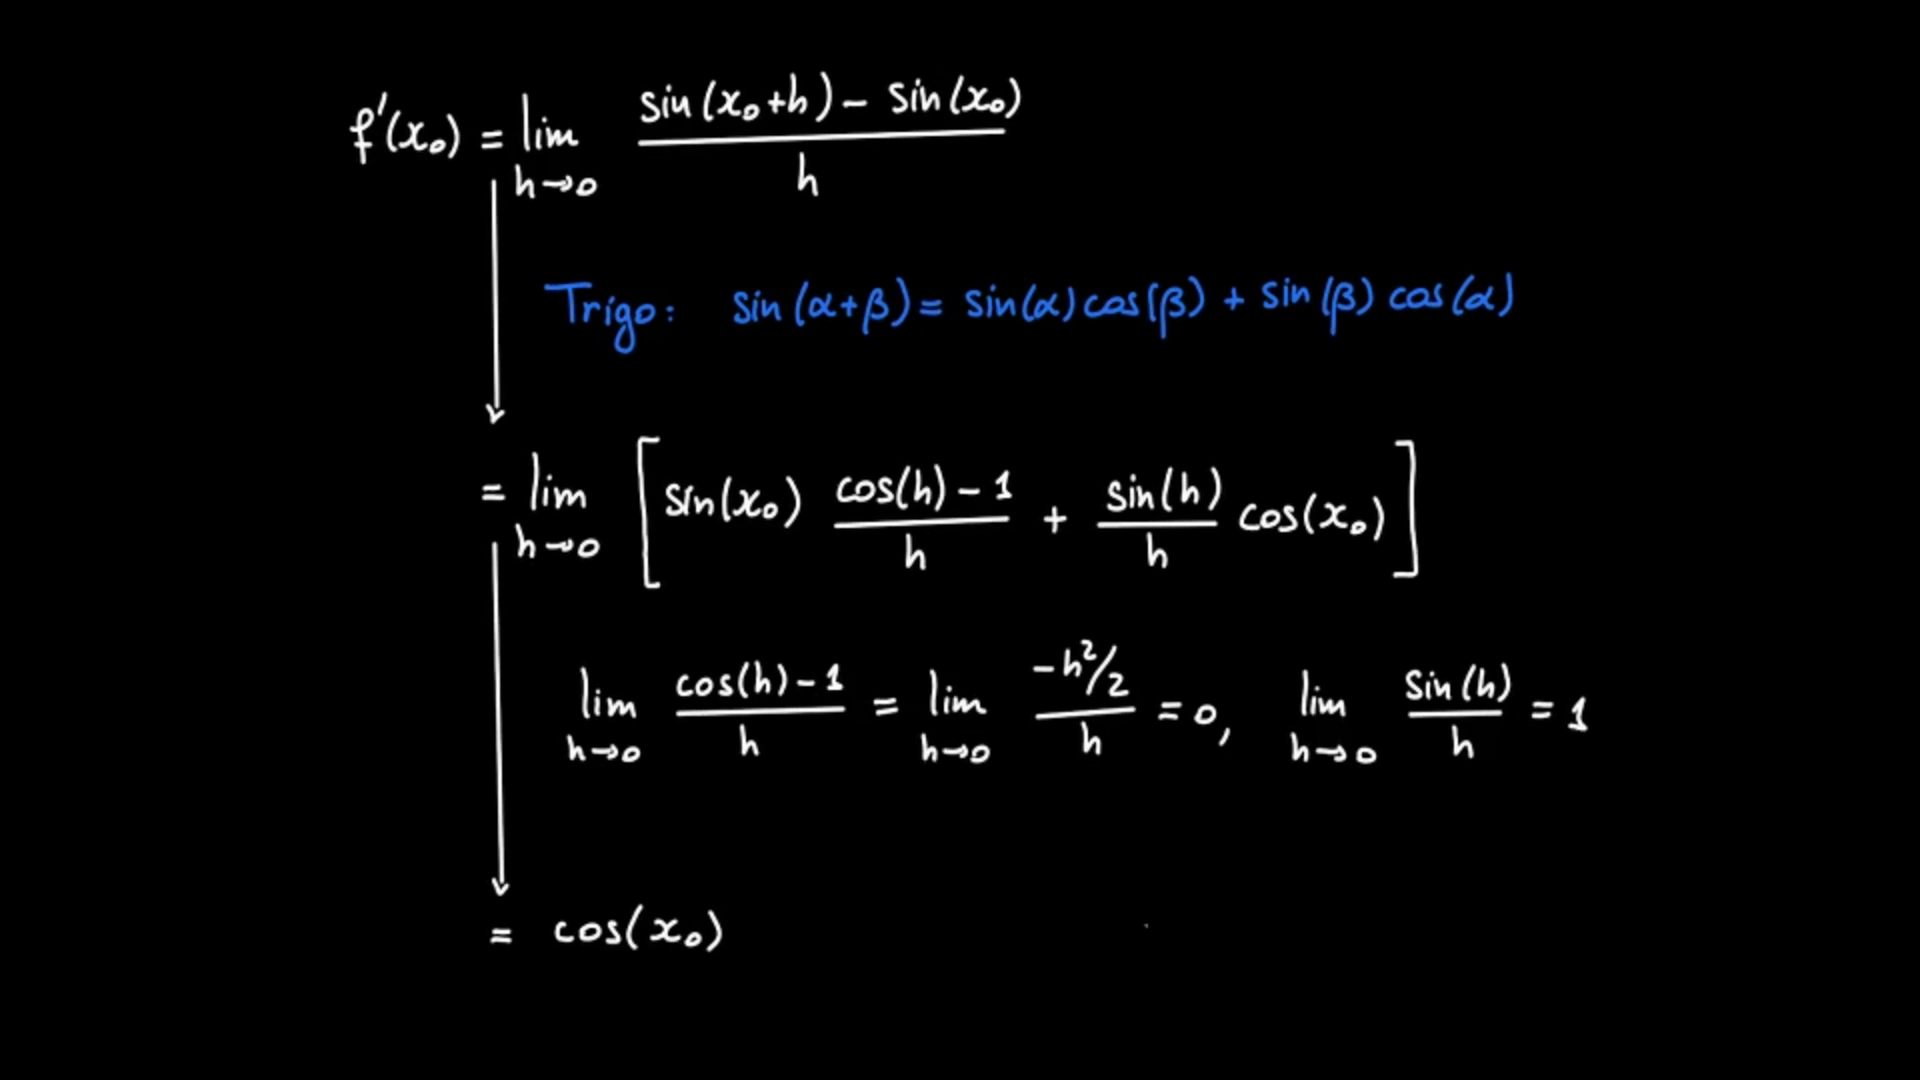 f'(x₀) = lim h→0 (sin(x₀+h) − sin(x₀)) / h
Trigo: sin(α+β) = sin(α) cos(β) + sin(β) cos(α)
= lim h→0 [ sin(x₀) (cos(h) − 1) / h + sin(h) / h cos(x₀) ]
lim h→0 (cos(h) − 1) / h = lim h→0 (−h²/2) / h = 0, lim h→0 sin(h) / h = 1
= cos(x₀)